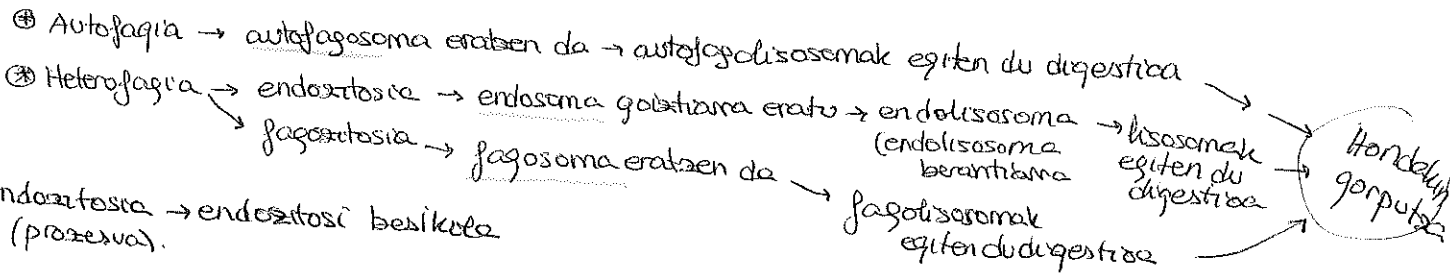 ⊛ Autofagia → autofagosoma eratzen da → autofagolisosomak egiten du digestioa
⊛ Heterofagia → endozitosia → endosoma goiztiarra eratu → endolisosoma → lisosomak
(endolisosoma egiten du
berantiarra digestioa
↘ fagozitosia → fagosoma eratzen da ↘ fagolisosomak
egiten du digestioa
Hondakin
gorputza
ndozitosia → endozitosi besikula
(prozesua).